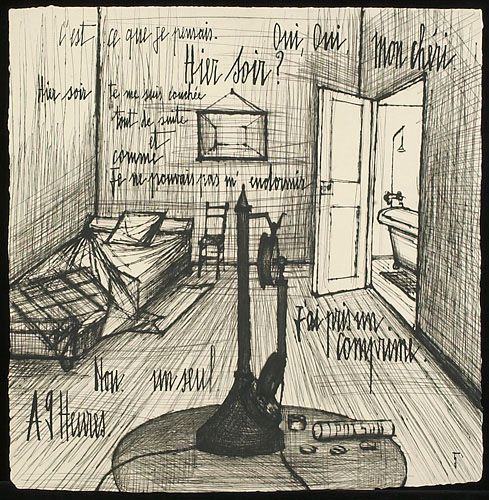 C'est ce que je pensais. Oui Oui mon chéri
Hier Soir?
Hier soir je me suis couchée
tout de suite
et
comme
Je ne pouvais pas m'endormir
J'ai pris un
comprimé.
Non un seul
A 9 Heures.